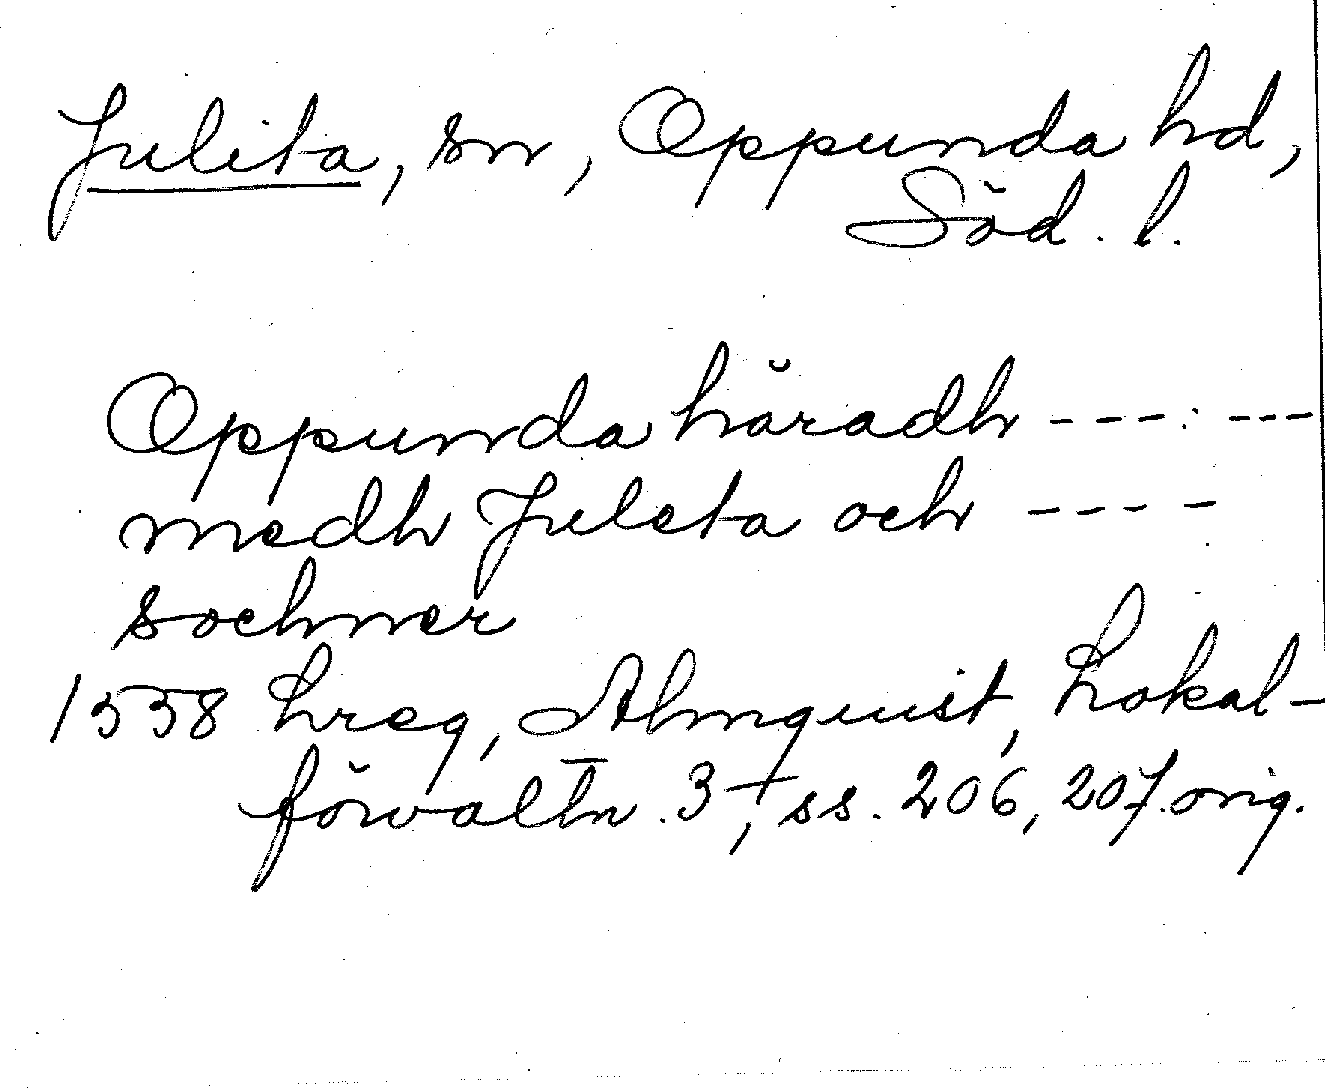 Julita, sn, Oppunda hd,
Söd. l.
Oppunda häradh --- : ---
medh Juleta och ----
sochner
1538 Lreg, Almquist, Lokal-
förvaltn. 3, ss. 206, 207. orig.